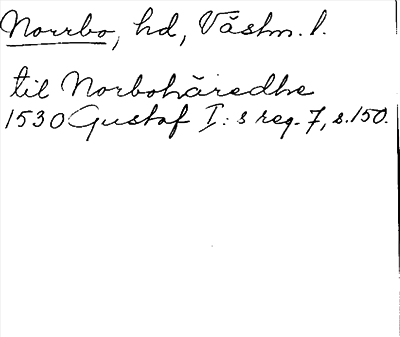 Norrbo, hd, Västm. l.
til Norbohäredhe
1530 Gustaf I:s reg. 7, s. 150.